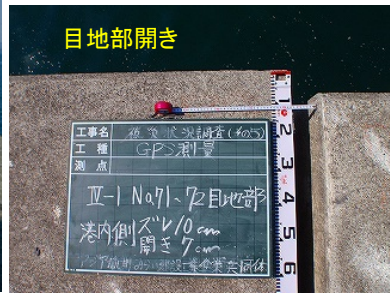 目地部開き
工事名 被災状況調査(その5)
工種 GPS測量
測点
Ⅳ-1 No71~72目地部
港内側 ズレ10cm
開き7cm
1
2
3
4
5
6